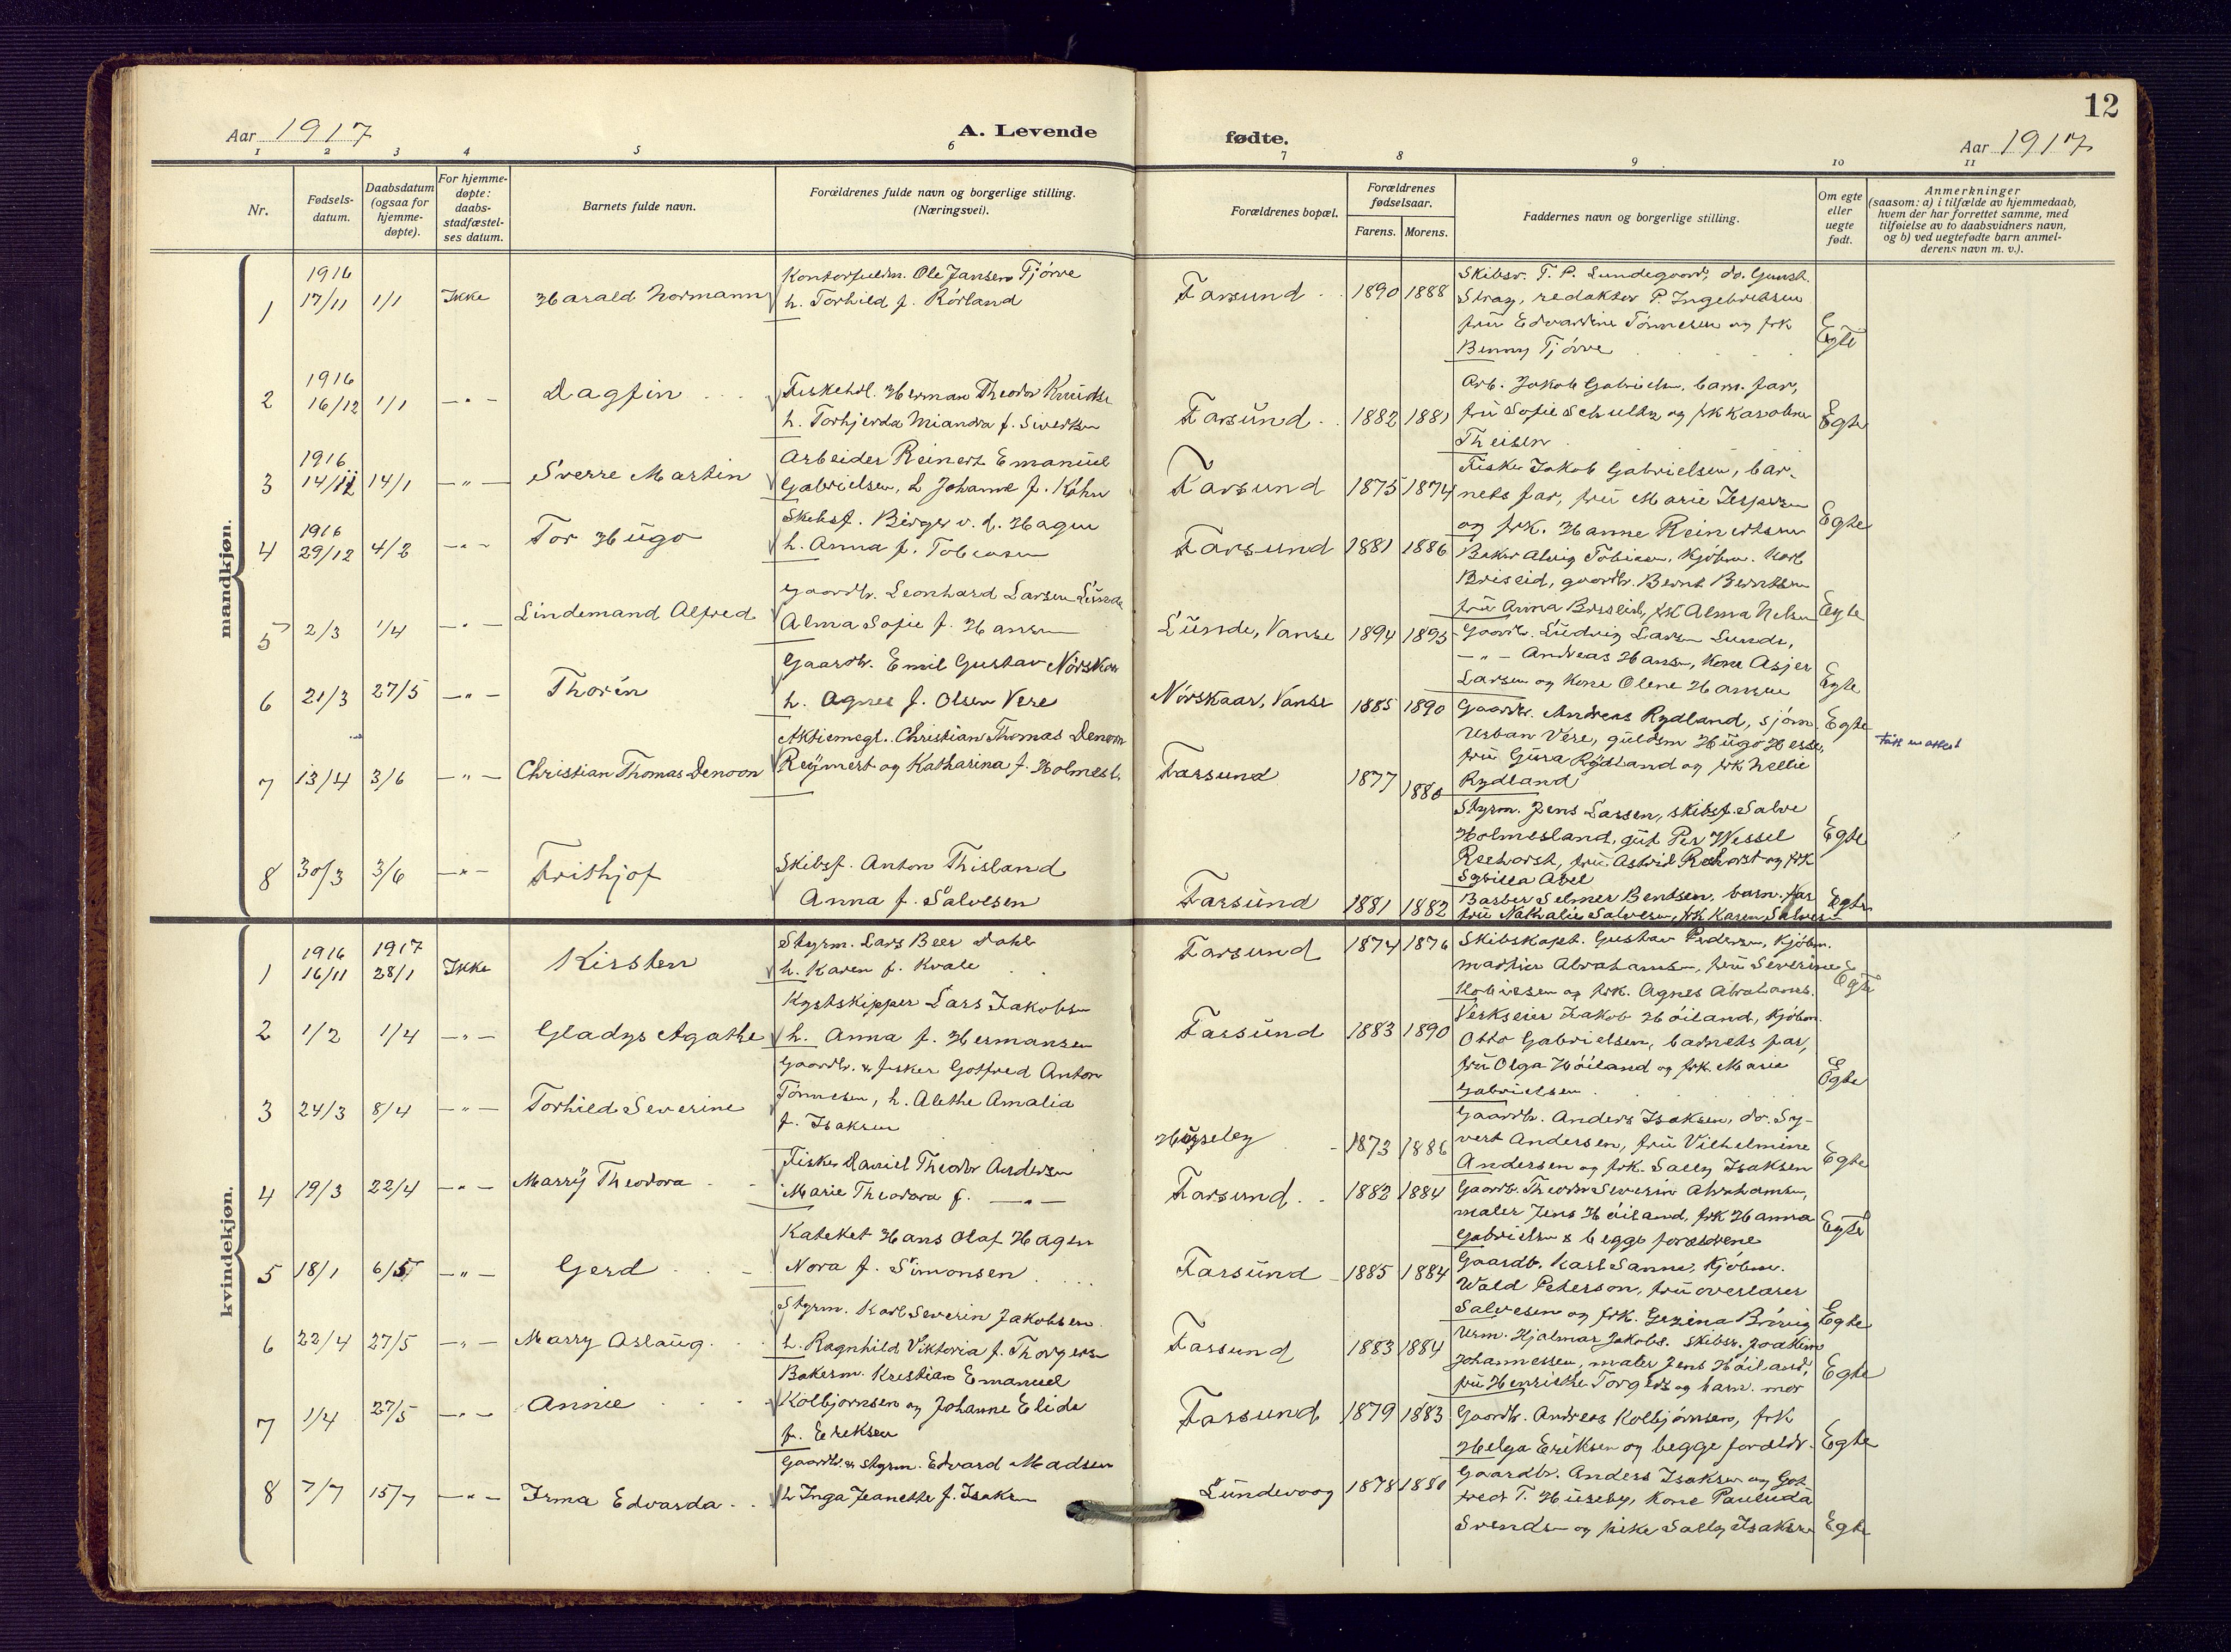 12
Aar 1917
A. Levende
fødte.
Aar 1917
1 2 3 4 5 6 7 8 9 10 11
Nr.
Fødsels-
datum.
Daabsdatum
(ogsaa for
hjemme-
døpte).
For hjemme-
døpte:
daabs-
stadfæstel-
ses datum.
Barnets fulde navn.
Forældrenes fulde navn og borgerlige stilling.
(Næringsvei).
Forældrenes bopæl.
Forældrenes
fødselsaar.
Farens. Morens.
Faddernes navn og borgerlige stilling.
Om egte
eller
uegte
født.
Anmerkninger
(saasom: a) i tilfælde av hjemmedaab,
hvem der har forrettet samme, med
tilføielse av to daabsvidners navn,
og b) ved uegtefødte barn anmel-
derens navn m. v.).
mandkjøn.
1
1916
17/11 1/1 Ikke Harald Normann
Ole Jansen Tjörve
h. Torhild f. Rörland
Farsund 1890 1888
Skibsr. T. P. Lundegaard, do. Gunst.
Stray, redaktör P. Ingebretsen
frü Edvardine Tönnesen og frk
Benny Tjörve
Egte
2
1916
16/12 1/1 -"- Dagfin
Fiskehdl. Herman Theodor Knüdse
h. Torhjerda Miandra f. Sivertsen
Farsünd 1882 1881
Arb. Jakob Gabrielsen, barn. far,
frü Sofie Schultz og frk Karoline
Theisen
Egte
3
1916
14/12 14/1 -"- Sverre Martin
Arbeider Reinert Emanüel
Gabrielsen, h Johanne f.
Farsund 1875 1874
Fisker Jakob Gabrielsen, bar-
nets far, frü Marie Jespersen
og frk. Hanne Reinertsen
Egte
4
1916
29/12 4/2 -"- Tor Hügo
Skibsf. Birger v. d. Hagen
h. Anna f. Tobiasen
Farsund 1881 1886
Baker Alvig Tobiasen, Kjöbm. Karl
Briseid, gaardbr. Bernt Berntsen
frü Anna Briseid, frk Alma Nelsen
Egte
5 2/3 1/4 -"- Lindemand Alfred
Gaardbr. Leonhard Larsen Lünde
Alma Sofie f. Hansen
Lünde, Vanse 1894 1895
Gaardb. Lüdvig Larsen Lunde,
-"- Andreas Hansen, Kone Asjer
Larsen og Kone Olene Hansen
Egte
6 21/3 27/5 -"- Thorén
Gaardbr. Emil Gustav Nörskaar
h. Agnes f. Olsen Vere
Nörskaar, Vanse 1885 1890
Gaardbr. Andreas Rydland, sjöm
Urban Vere, güldsm Hügo Hesse,
frü Güra Rydland og frk Nellie
Rydland
Egte
7 13/4 3/6 -"- Christian Thomas Denoon
Aktiemegl. Christian Thomas Denoon
Reymert og Katharina f. Holmesl.
Farsund 1877 1880
Styrm. Jens Larsen, skibsf. Salve
Holmesland, güt Per Wessel
Reehorst, frü Astrid Reehorst og frk
Sybilla Abel
Egte
Fått en attest
8 30/3 3/6 -"- Frithjof
Skibsf. Anton Thisland
Anna f. Salvesen
Farsünd 1881 1882
Barber Selmer Bentsen, barn. far
frü Nathalie Salvesen, frk Karen Salvesen
Egte
kvindekjøn.
1
1916 1917
16/11 28/1 Ikke Kirsten
Styrm. Lars Beer Dahl
h. Karen f. Kvale
Farsund 1874 1876
Skibskapt. Gustav Pedersen, Kjöbm.
Martin Abrahamsen, frü Severine
og frk. Agnes Abrahams.
Egte
2 1/2 1/4 -"- Gladys Agathe
Kystskipper Lars Jakobsen
h. Anna f. Hermansen
Farsünd 1883 1890
Verkseier Jakob Höiland, Kjöbm.
Otto Gabrielsen, barnets far,
frü Olga Höiland og frk. Marie
Gabrielsen
Egte
3 24/3 8/4 -"- Torhild Severine
Gaardbr. & fisker Gotfred Anton
Tönnesen, h. Alethe Amalia
f. Isaksen
Hüseby 1873 1886
Gaardbr. Anders Isaksen, do. Sy-
vert Andersen, frü Vilhelmine
Andersen og frk. Sally Isaksen
Egte
4 19/3 22/4 -"- Marry Theodora
Fisker Daniel Theodor Andersen
Marie Theodora f. -"-
Farsund 1882 1884
Gaardb. Theodor Severin Abrahamsen,
maler Jens Höiland, frk Hanna
Gabrielsen & begge forældrene
Egte
5 18/1 6/5 -"- Gerd
Kateket Hans Olaf Hagen
Nora f. Simonsen
Farsünd 1885 1884
Gaardb. Karl Sanne, Kjöbm.
Wald Peterson, frü overlærer
Salvesen og frk. Gezina Brövig
Egte
6 22/4 27/5 -"- Marry Aslaüg
Styrm. Karl Severin Jakobsen
h. Ragnhild Viktoria f. Thorgersen
Farsund 1883 1884
Urm. Hjalmar Jakobs. Skibsr. Joakim
Johannessen, maler Jens Höiland,
frü Henriette Torgers og barn. mor
Egte
7 1/4 27/5 -"- Annie
Bakerm. Kristian Emanuel
Kolbjornsen og Johanne Elida
f. Eriksen
Farsund 1879 1883
Gaardbr. Andreas Kolbjörnsen, frk
Helga Eriksen og begge forældr.
Egte
8 7/7 15/7 -"- Irma Edvarda
Gaardbr. & styrm. Edvard Madsen
h Inga Jeanette f. Isaksen
Lündevaag 1878 1880
Gaardbr. Anders Isaksen og Got
fred T. Hüseby, Kone Paulüda
Svendsen og pike Sally Isaksen
Egte